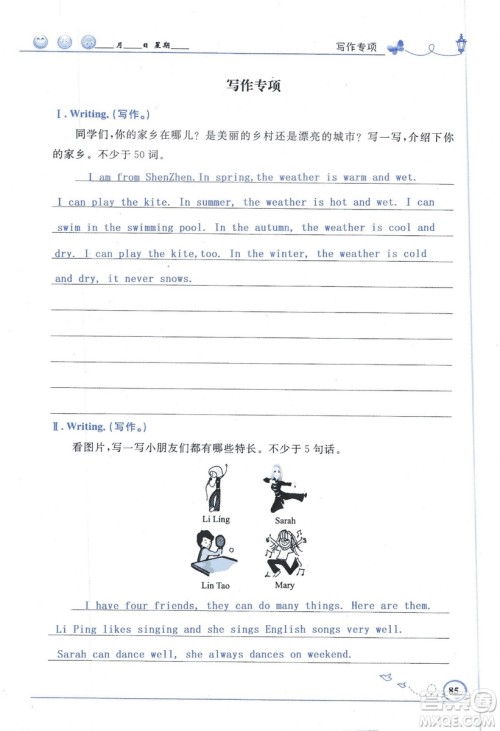 月 日 星期
写作专项
写作专项
Ⅰ. Writing. (写作。)
同学们,你的家乡在哪儿? 是美丽的乡村还是漂亮的城市? 写一写,介绍下你
的家乡。不少于 50 词。
I am from ShenZhen.In spring,the weather is warm and wet.
I can play the kite. In summer, the weather is hot and wet. I can
swim in the swimming pool. In the autumn, the weather is cool and
dry. I can play the kite,too. In the winter, the weather is cold
and dry, it never snows.
Ⅱ. Writing. (写作。)
看图片,写一写小朋友们都有哪些特长。不少于 5 句话。
Li Ling
Sarah
Lin Tao
Mary
I have four friends, they can do many things. Here are them.
Li Ping likes singing and she sings English songs very well.
Sarah can dance well, she always dances on weekend.
85